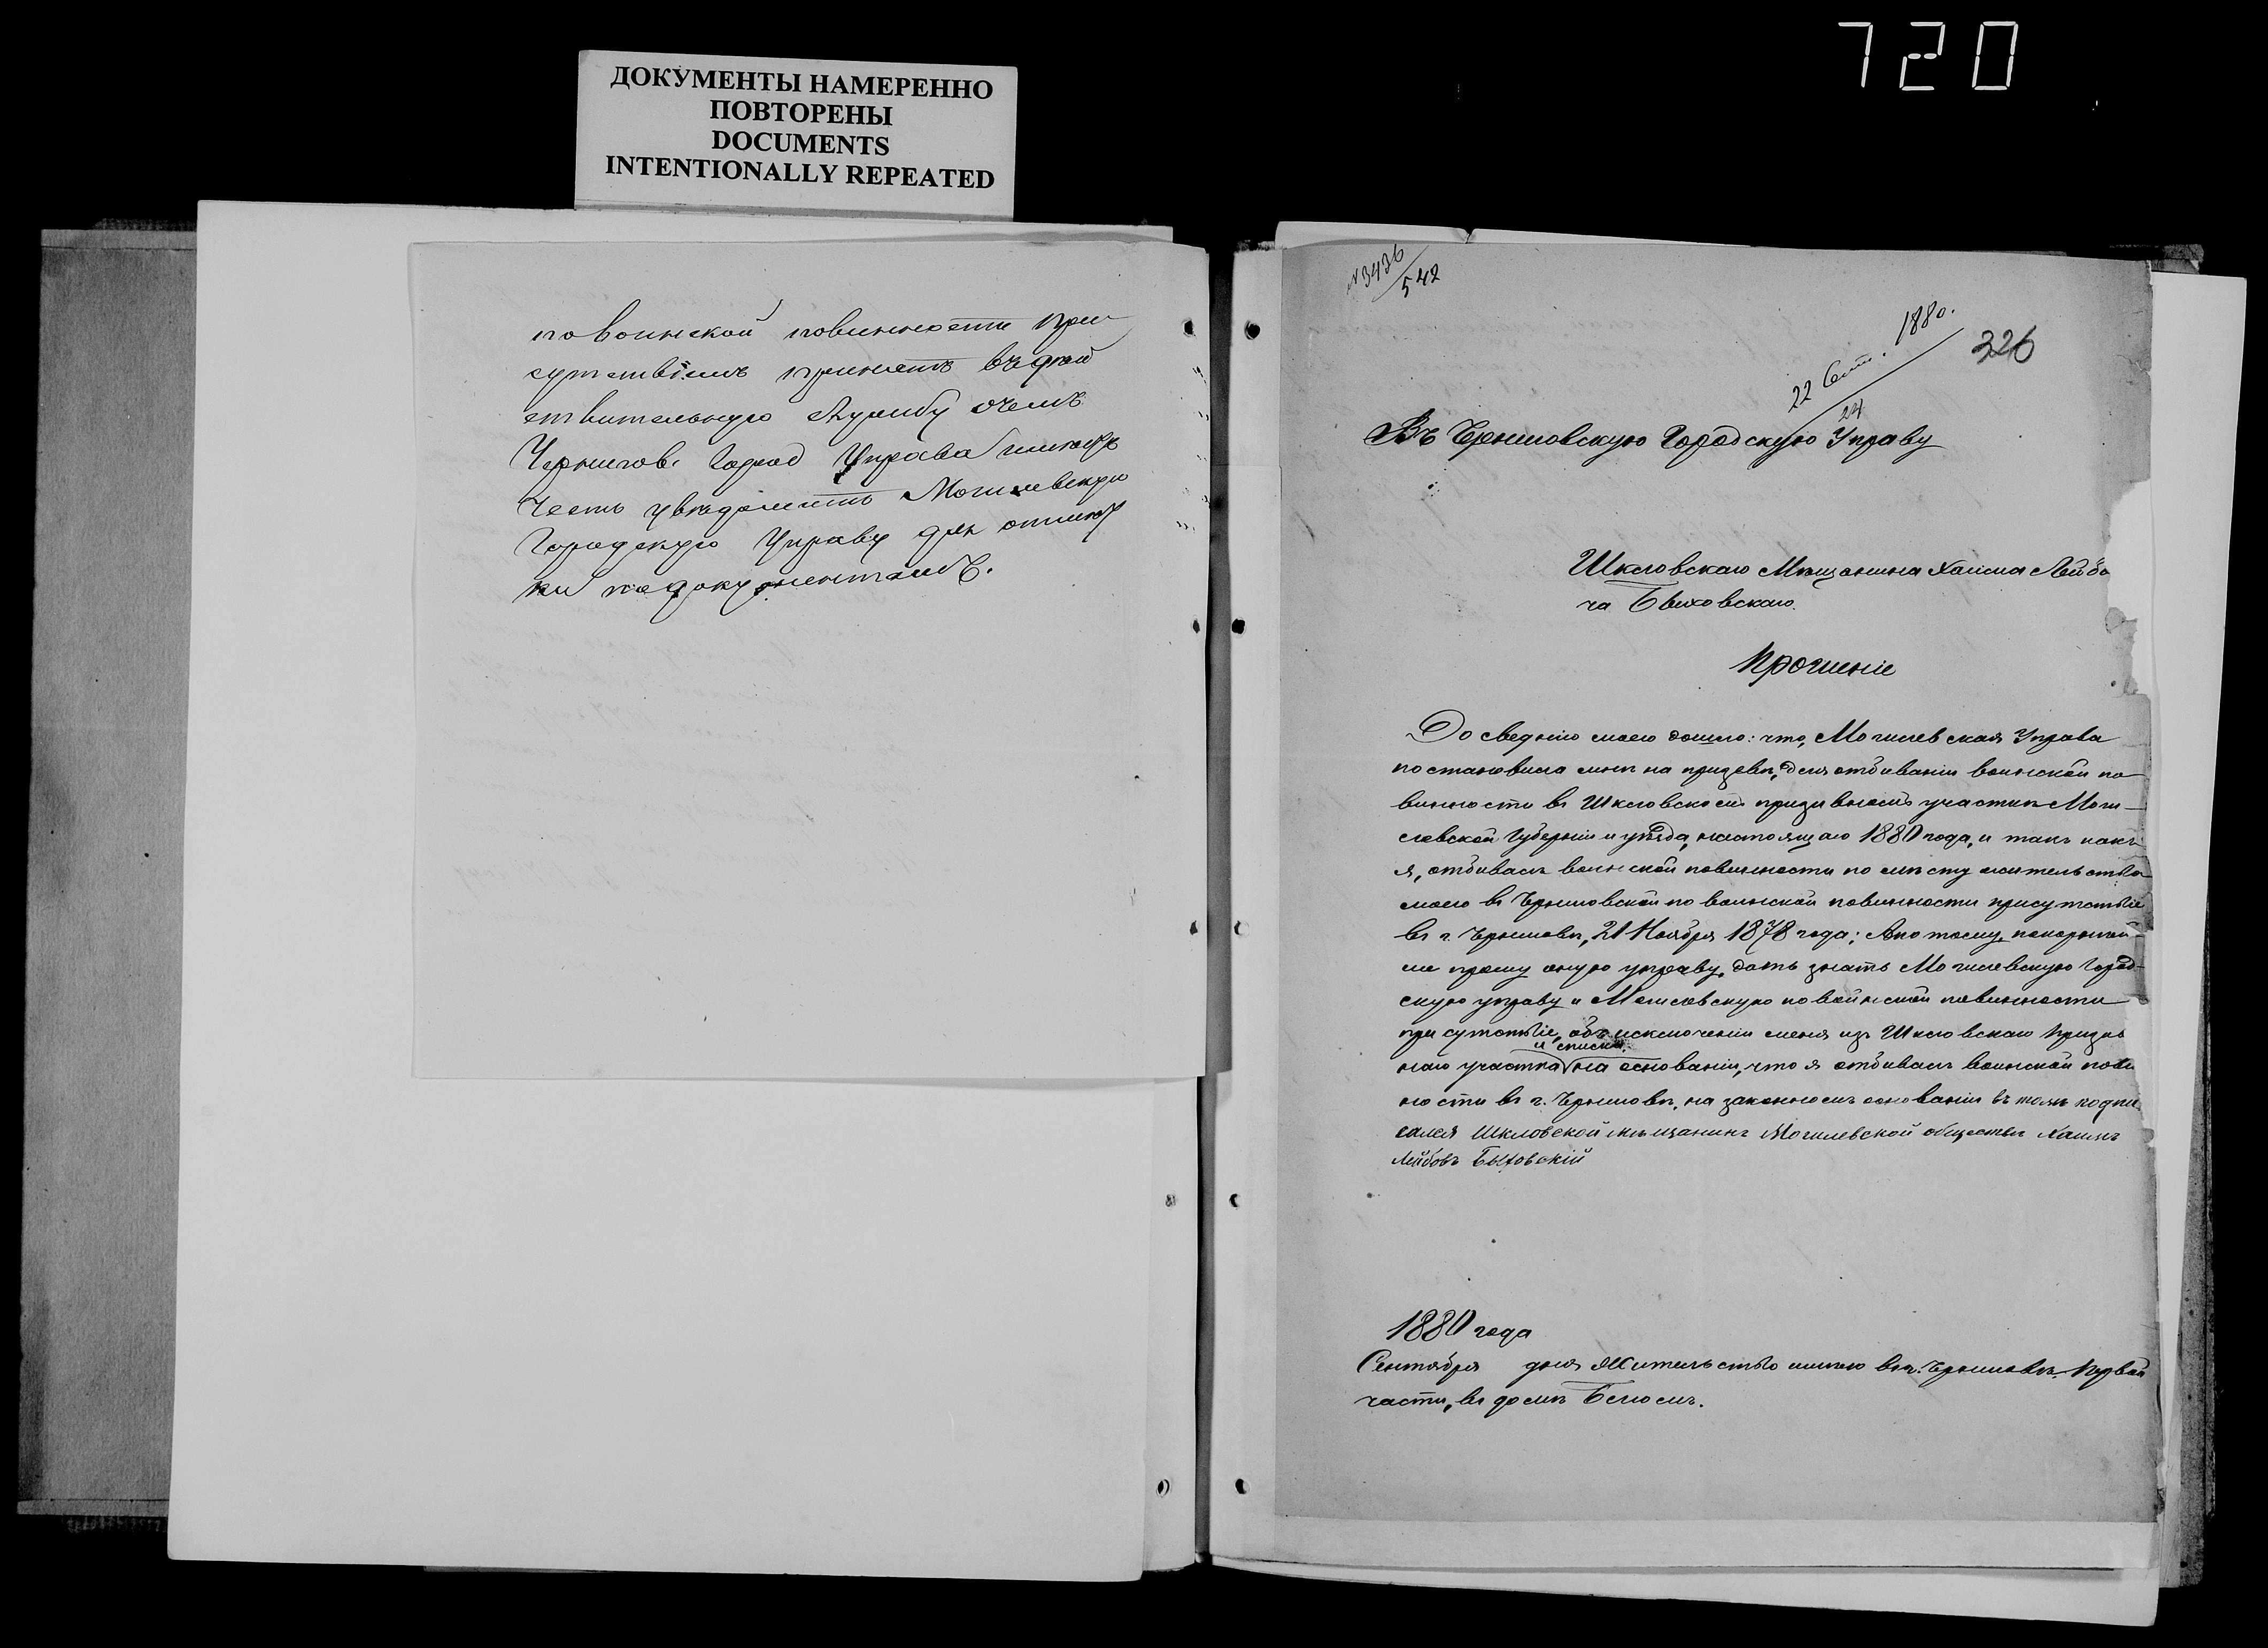 720
ДОКУМЕНТЫ НАМЕРЕННО
ПОВТОРЕНЫ
DOCUMENTS
INTENTIONALLY REPEATED
по воинской повинности при
сутствіемъ принятъ въ дѣй
ствительную службу о чемъ
Чернигов. Город Управа имѣетъ
честь увѣдомить Могилевскую
Городскую Управу для отмѣт
ки по документамъ.
№ 3436
542
22 Сент. 1880.
24
326
Въ Чрниговскую Городскую Управу
Шкловскаго Мѣщанина Хаима Лейбо
ча Быховскаго.
Прошеніе
До сведнію моего дошло: что, Могилевская Управа
постановила мнѣ на призовъ, для отбиванія воинской по
винности въ Шкловскомъ призывномъ участкѣ Моги-
левской Губерніи и уѣзда, настоящаго 1880 года, и такъ какъ
я, отбивалъ воинской повинности по мѣсту жительства
моего въ Чрниговской по воинской повинности присутствіе
въ г. Чрниговѣ, 21 Ноября 1878 года; А потому, покорнѣй-
ше прошу оную управу, дать знать Могилевскую Город-
скую управу и Могилевскую по воинской повинности
присутствіе, объ исключеніи меня изъ Шкловскаго призыв
и списки,
наго участка на основаніи, что я отбивалъ воинской пови
ности въ г. Чрниговѣ, на законномъ основаніи въ томъ подпи
сался Шкловской мѣщанинъ Могилевской обществъ Хаимъ
Лейбовъ Быховскій
1880 года
Сентября дня Жительство имѣю въ г. Чрниговѣ, Првой
части, въ домѣ